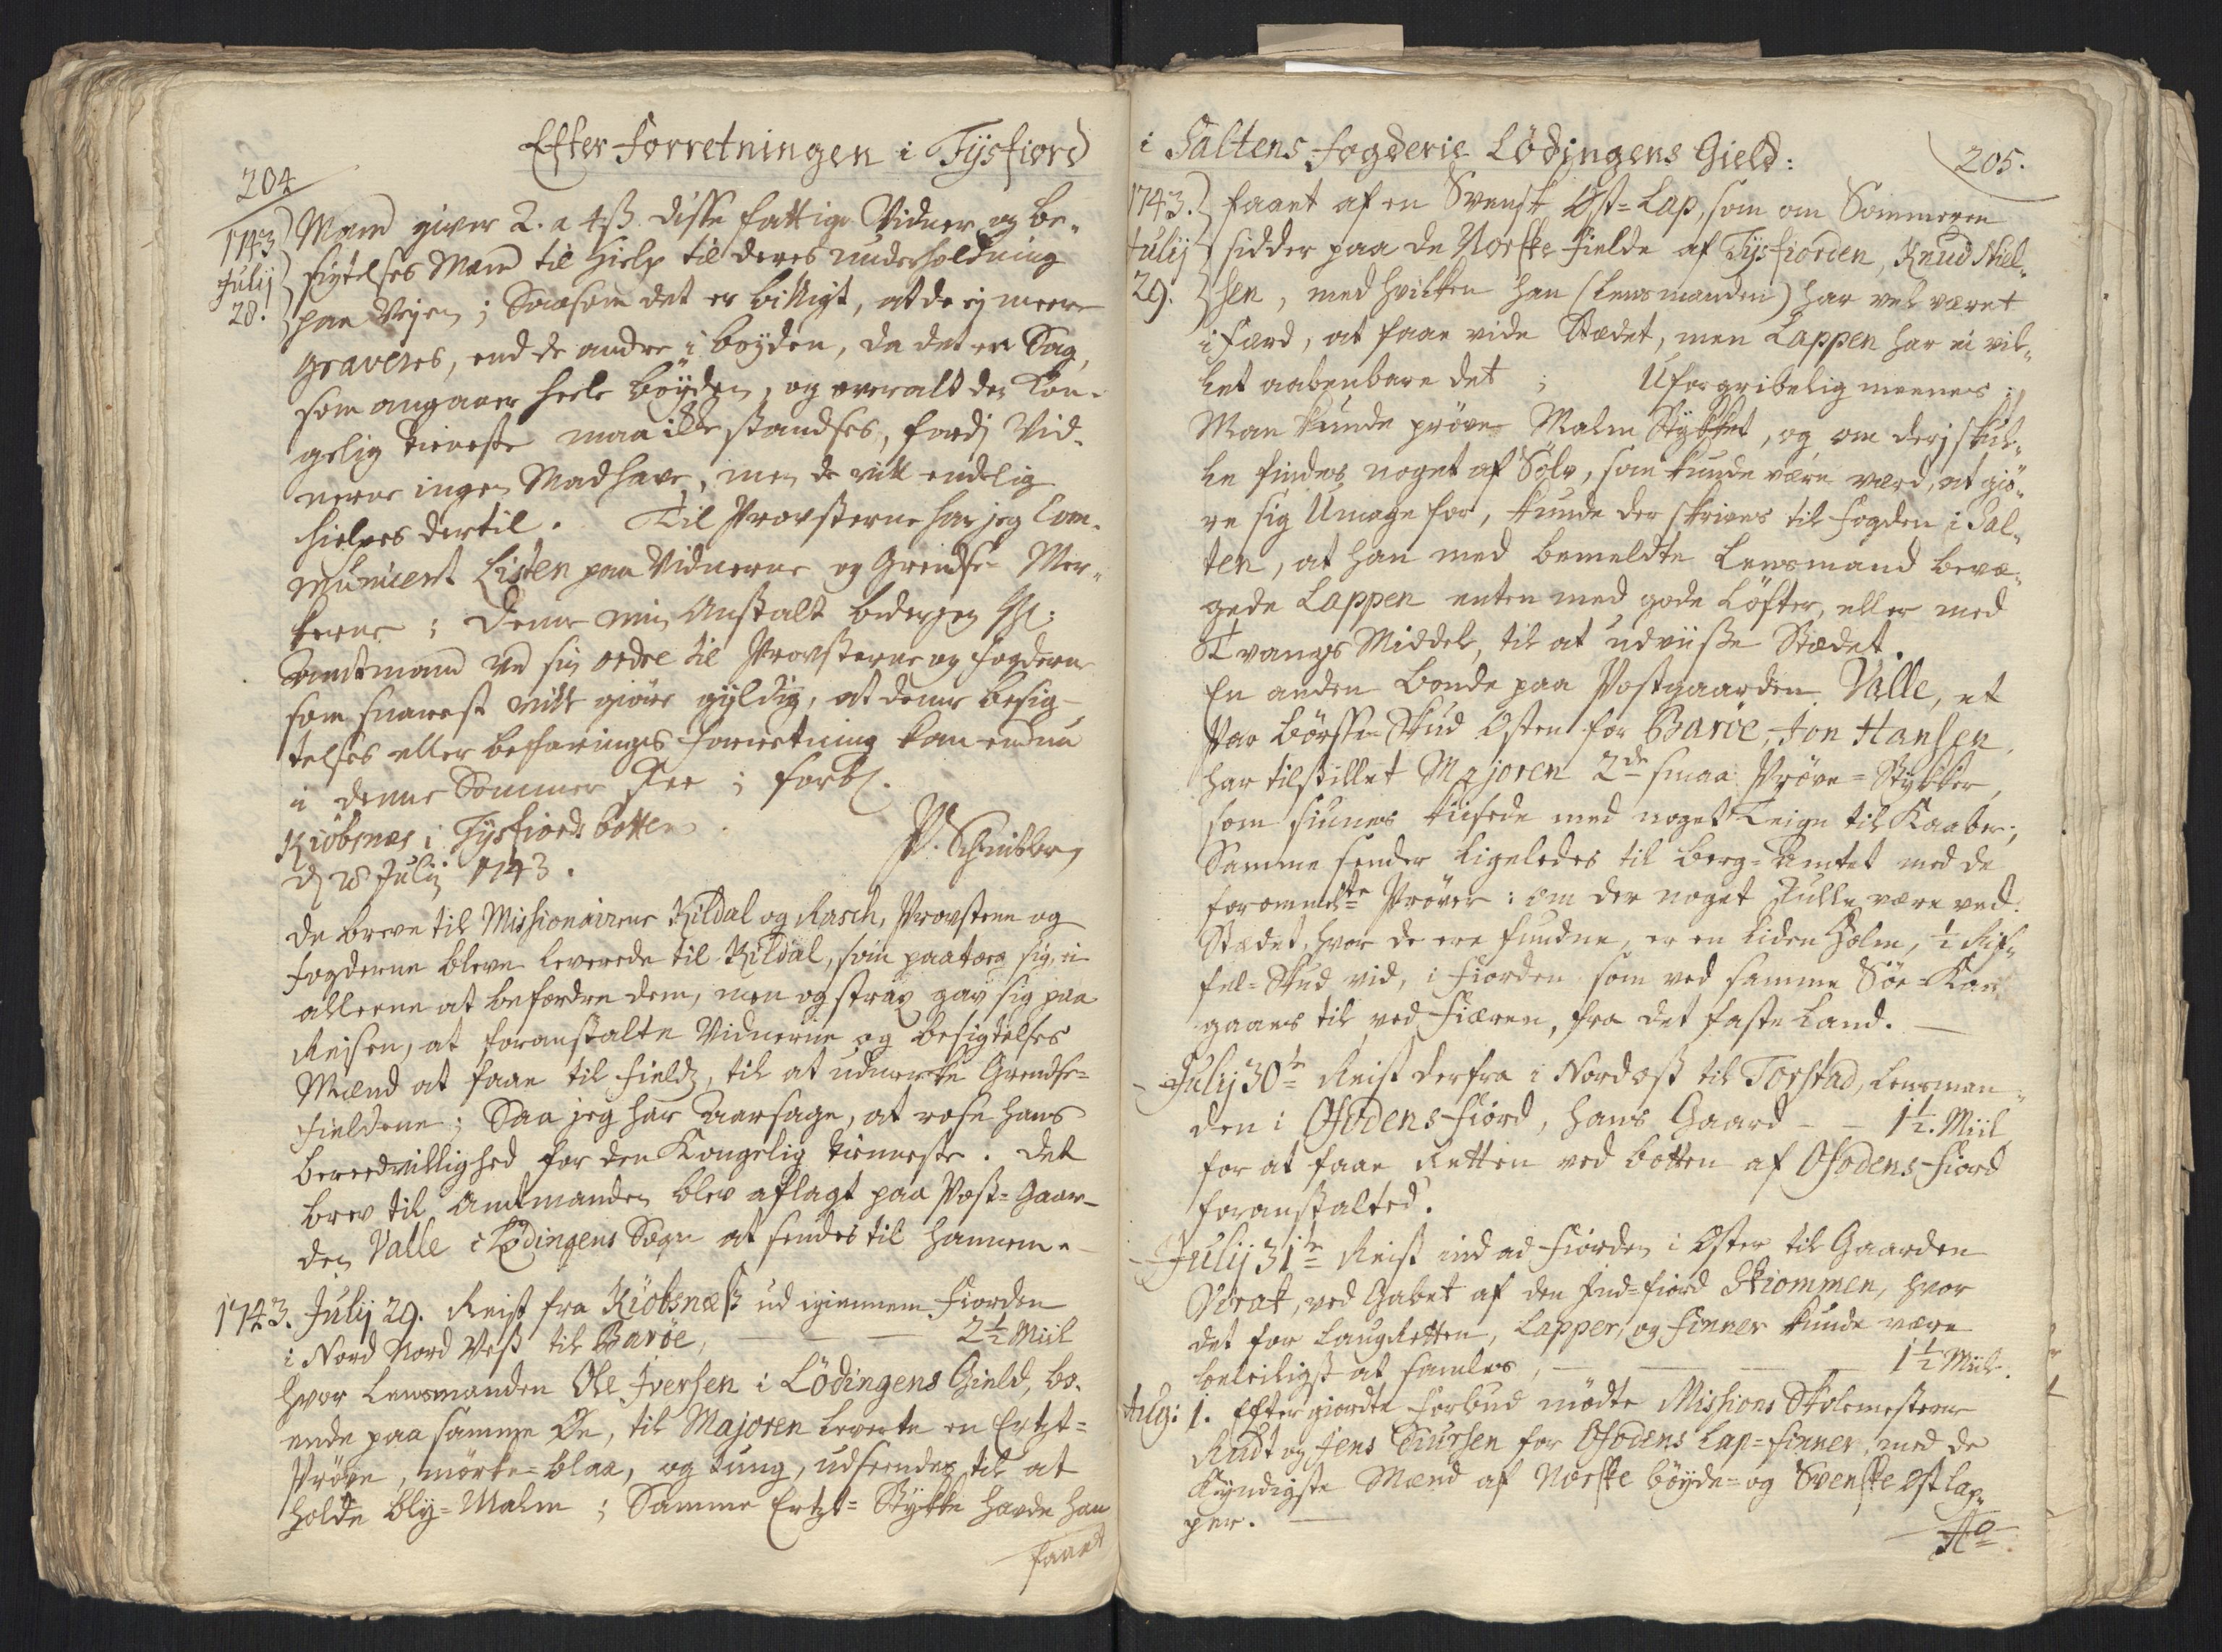 Efter Forretningen i Tysfiord
204
1743
Julij
28.
Mand giver 2. a 4ß disse fattige Vidner og be-
sigtelses Mænd til Hielp til deres underholdning
paa Vejen; Saasom det er billigt, at de ej meere
graveres, end de andre i böyden, da det er Sag,
som angaaer heele böyden, og overalt den Kon-
gelig tieneste maa ikke standses, fordj Vid-
nerne ingen Mad have, men de vill endelig
hielpes dertil. Til Provsterne har jeg Com-
municert Listen paa Vidnerne og Grendse- Mer-
kerne; Denne min Anstalt beder jeg Hr:
Amtmand ved sin ordre til Provsterne og fogderne
som snarest vilde giöre gyldig, at denne besig-
telses eller befarings forretning kan endnu
i denne Sommer skee; forbl.
Kiöbsnæs i Tysfiords botten
d 28 Julij 1743.
P. Schnitler
De breve til Missionairerne Kildal og Rasch, Provstene og
fogderne bleve leverede til Kildal, som paatog sig, ei
alleene at befordre dem, men og strax gav sig paa
Reisen, at foranstalte Vidnerne og besigtelses
Mænd at faae til fields, til at udmerke Grendse-
Fieldene; Saa jeg har Aarsage, at rose hans
beredvillighed for den Kongelig tienneste. Det
brev til Amtmanden blev aflagt paa Post-Gaar-
den Valle i Lödingens Sogn at sendes til hannem.
1743. Julij 29. Reist fra Kiöbsnæß ud igiennem Fiorden
i Nord Nord Vest til Baröe, — — — 2½ Miil
hvor Lensmanden Ole Iversen i Lödingens Gield, bo-
ende paa samme Öe, til Majoren leverte en Ertzt-
Pröve, mörke-blaa, og tung, udseendes til at
holde bly-Malm; Samme Ertzt-Stykke havde han
faaet
i Saltens Fogderie Lödingens Gield:
205.
1743.
Julij
29.
faaet af en Svensk Öst-Lap, som om Sommeren
sidder paa de Norske Fielde af Tysfiorden, Knud Niel-
sen, med hvilken han (Lensmanden) har vel været
i færd, at faae vide Stædet, men Lappen har ei vil-
let aabenbare det; Uforgribelig meenes;
Man kunde pröve Malm Stykket, og om derj skul-
le findes noget af Sölv, som kunde være værd, at giö-
re sig Umage for, kunde der skrives til fogden i Sal-
ten, at han med bemeldte Lensmand bevæ-
gede Lappen enten med gode Löfter, eller med
Tvangs Middel, til at udviise Stædet.
En anden Bonde paa Postgaarden Valle, et
Par Börsse-Skud Östen for Baröe, Jon Hansen,
har tilstillet Majoren 2de smaa Pröve-Stykker,
som siunes kiisede med noget Teign til Kaaber;
Samme sender ligeledes til Berg-Amtet med de
forommeldte Pröver: om der noget skulle være ved.
Stædet, hvor de ere fundne, er en liden Holm, ½ Rif-
fel-Skud vid, i Fiorden som ved samme Söe-Kan
gaaes til ved Fiæren, fra det faste Land. —
Julij 30te Reist derfra i Nordost til Torstad, Lensman-
den i Ofodens Fiord, hans Gaard — — 1½. Miil
for at faae Retten ved botten af Ofodens-Fiord
foranstalted.
Julij 31te Reist ind ad Fiorden i Öster til Gaarden
Virak, ved Gabet af den Ind-fiord Skiommen, hvor
det for LaugRetten, Lapper, og Finner kunde være
beleiligst at samles, — — — 1½ Miil.
Aug: 1. Efter giordte Forbud mödte Missions Skolemesterne
Rudt og Jens Siursen for Ofodens Lap-Finner, med de
Kyndigste Mænd af Norske böyde- og Svenske Östlap-
per. —
Ao